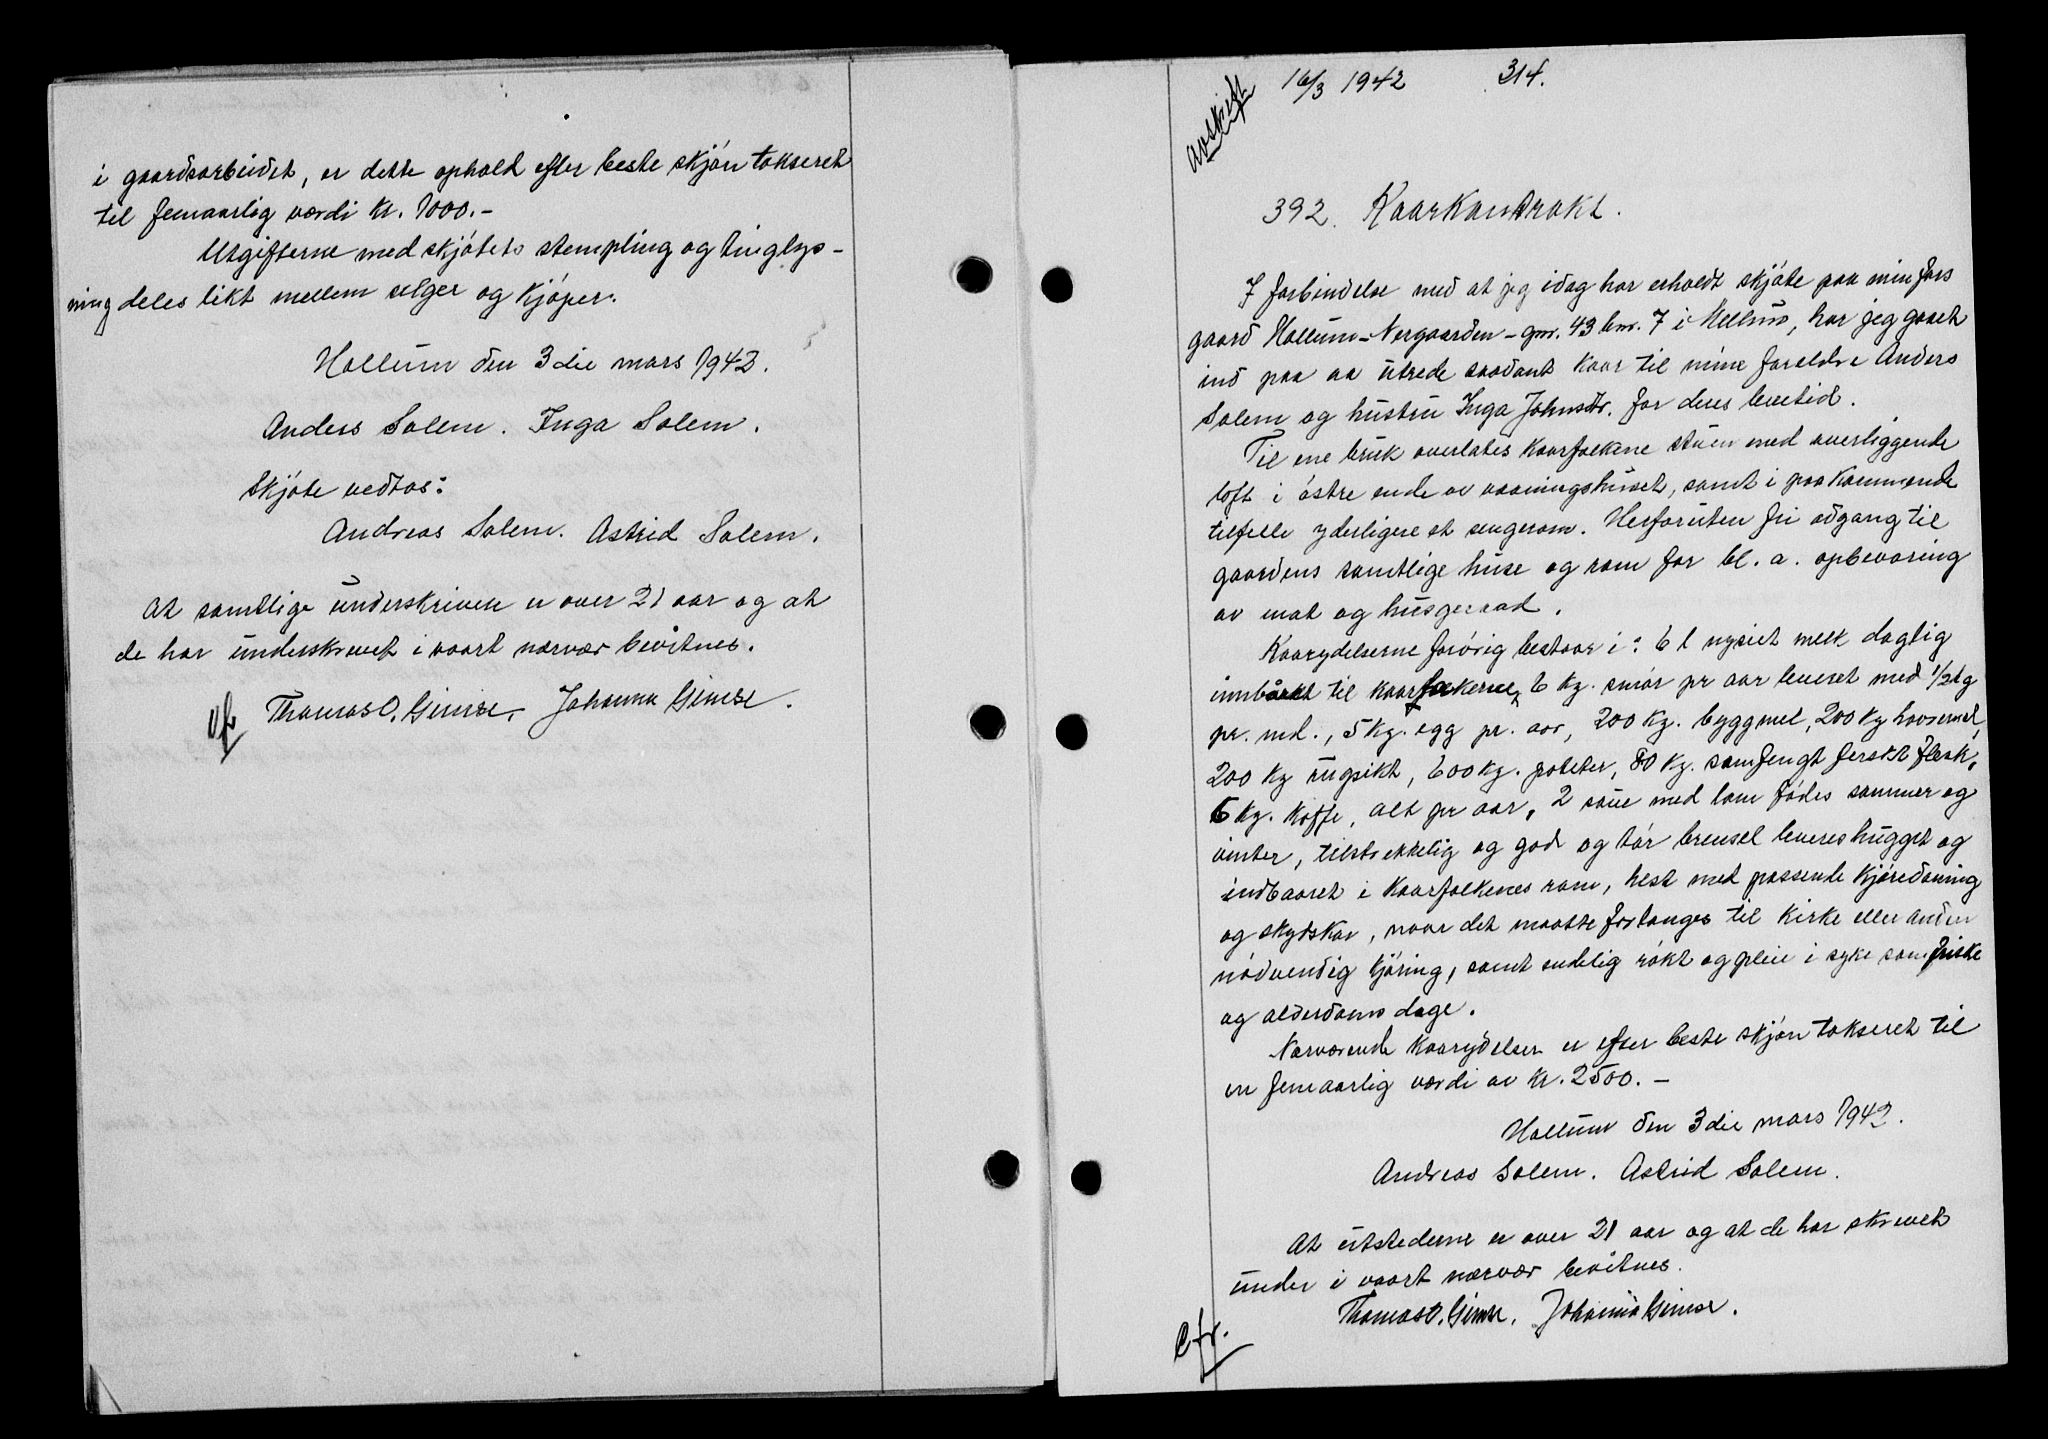 i gaardsarbeidet, er dette ophold efter beste skjön takseret
til femaarlig værdi kr. 1000.-
Utgifterne med skjötets stempling og tinglys-
ning deles likt mellem selger og kjöper.
Hollum den 3die mars 1942.
Anders Solem. Inga Solem.
Skjöte vedtas:
Andreas Solem. Astrid Solem.
At samtlige underskrivere er over 21 aar og at
de har underskrevet i vaart nærvær bevitnes.
Thomas O. Gimse. Johanna Gimse.
avskrift
16/3 1942 314.
392. Kaarkontrakt.
I forbindelse med at jeg idag har erholdt skjöte paa min fars
gaard Hollum-Nergaarden - gnr. 43 bnr. 7 i Melhus, har jeg gaaet
ind paa aa utrede saadant kaar til mine foreldre Anders
Solem og hustru Inga Johnsdtr. for deres levetid.
Til ene bruk overlates kaarfolkene stuen med overliggende
loft i östre ende av vaaningshuset, samt i paakommende
tilfelle yderligere et sengerom. Herforuten fri adgang til
gaardens samtlige huse og rom for bl. a. opbevaring
av mat og husgeraad.
Kaarydelserne forövrig bestaar i: 6 l nysiet melk daglig
innbåret til kaarfolkerne, 6 kg. smör pr aar leveret med 1/2 kg
pr. md., 5 kg. egg pr. aar, 200 kg. byggmel, 200 kg havremel,
200 kg rugsikt, 600 kg. poteter, 80 kg. samfengt ferskt flesk,
6 kg. kaffe, alt pr aar, 2 saue med lam födes sommer og
vinter, tilstrekkelig og god og tör brensel leveres hugget og
indbaaret i kaarfolkenes rom, hest med passende kjöredoning
og skydskar, naar det maatte forlanges til kirke eller anden
nödvendig kjöring, samt endelig rökt og pleie i syke som friske
og alderdoms dage.
Nærværende kaarydelser er efter beste skjön takseret til
en femaarlig værdi av kr. 2500.-
Hollum den 3die mars 1942.
Andreas Solem. Astrid Solem.
At utstederne er over 21 aar og at de har skrevet
under i vaart nærvær bevitnes.
Thomas O. Gimse. Johanna Gimse.
Cfr.